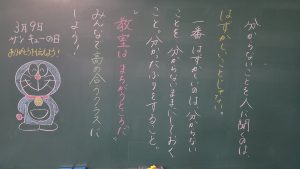 分からないことを人に聞くのは、
はずかしいことじゃない。
一番はずかしいのは分からない
ことを分からないままにしておく
こと。分かったふりをすること。
"教室はまちがうところだ"
みんなで高め合うクラスに
しよう!
3月9日
サンキューの日
ありがとうを伝えよう!